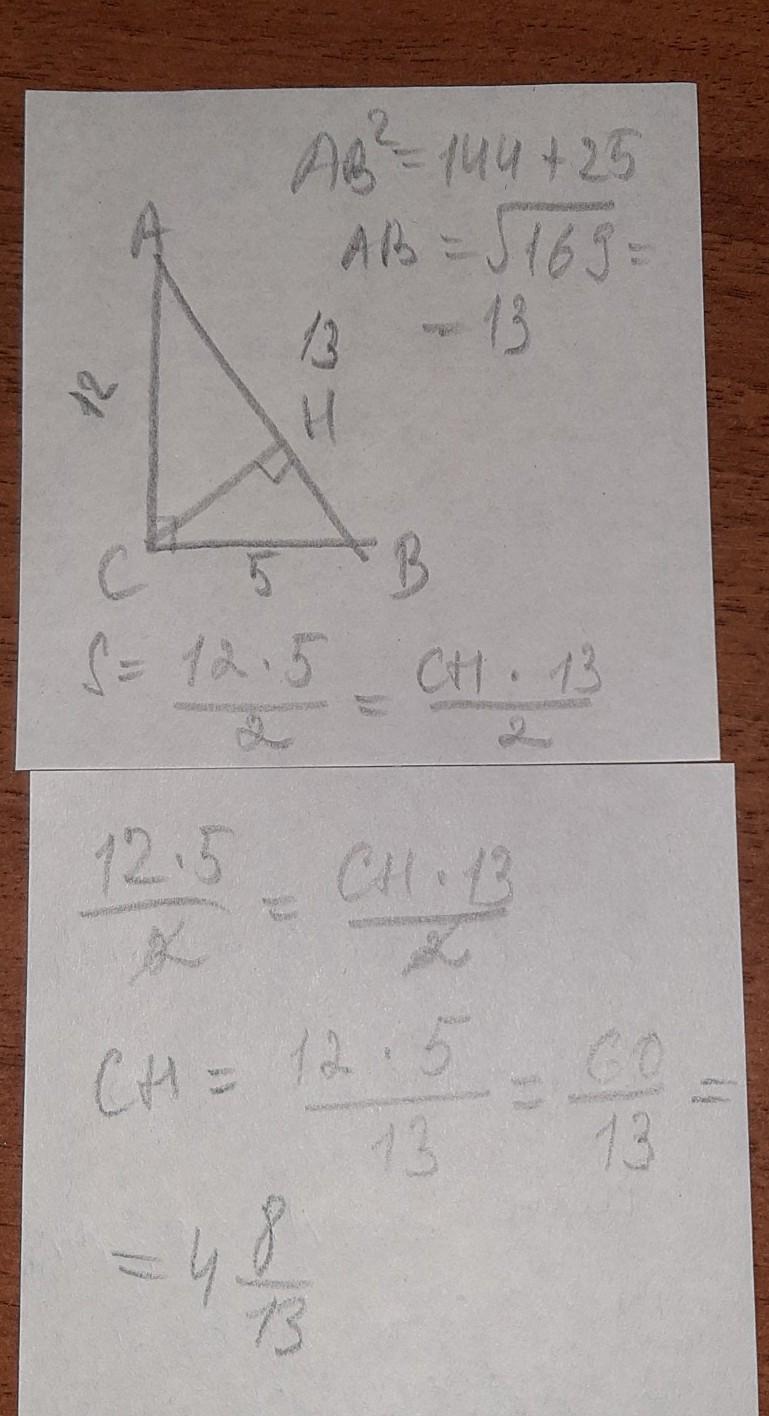 AB² = 144 + 25
AB = √169 =
- 13
A
12
13
H
C
5
B
S = 12 · 5 / 2 = CH · 13 / 2
12 · 5 / 2 = CH · 13 / 2
CH = 12 · 5 / 13 = 60 / 13 =
= 4 8/13